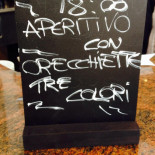 18:00
APERITIVO
CON
ORECCHIETTE
TRE COLORI